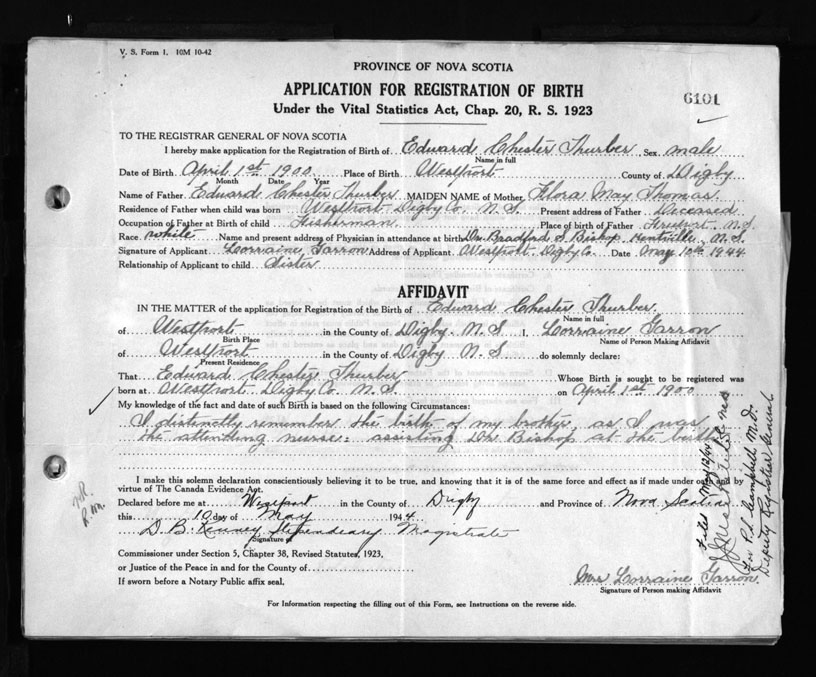 V. S. Form 1. 10M 10-42
PROVINCE OF NOVA SCOTIA
APPLICATION FOR REGISTRATION OF BIRTH
6101
Under the Vital Statistics Act, Chap. 20, R. S. 1923
TO THE REGISTRAR GENERAL OF NOVA SCOTIA
I hereby make application for the Registration of Birth of Edward Chester Thurber Sex male
Name in full
Date of Birth April 1st 1900 Place of Birth Westport County of Digby
Month Date Year
Name of Father Edward Chester Thurber MAIDEN NAME of Mother Flora May Thomas
Residence of Father when child was born Westport Digby Co. N. S. Present address of Father Deceased
Occupation of Father at Birth of child Fisherman Place of birth of Father Freeport N.S.
Race white Name and present address of Physician in attendance at birth Dr Bradford S Bishop, Kentville, N. S.
Signature of Applicant Lorraine Garron Address of Applicant Westport Digby Co. Date May 10th 1944
Relationship of Applicant to child Sister
AFFIDAVIT
IN THE MATTER of the application for Registration of the Birth of Edward Chester Thurber
Name in full
of Westport in the County of Digby N. S. I, Lorraine Garron
Birth Place Name of Person Making Affidavit
of Westport in the County of Digby N. S do solemnly declare:
Present Residence
That Edward Chester Thurber Whose Birth is sought to be registered was
born at Westport Digby Co. N. S. on April 1st 1900
My knowledge of the fact and date of such Birth is based on the following Circumstances:
I distinctly remember the birth of my brother, as I was
the attending nurse: assisting Dr Bishop at the birth
I make this solemn declaration conscientiously believing it to be true, and knowing that it is of the same force and effect as if made under oath and by
virtue of The Canada Evidence Act.
Declared before me at Westport in the County of Digby and Province of Nova Scotia
this 10 day of May 1944
D. B. Kenney Stipendeary Magistrate
Signature of
Commissioner under Section 5, Chapter 38, Revised Statutes, 1923,
or Justice of the Peace in and for the County of
If sworn before a Notary Public affix seal.
Mrs Lorraine Garron
Signature of Person making Affidavit
For Information respecting the filling out of this Form, see Instructions on the reverse side.
Filed May 12/44
For P. S. Campbell M.D.
Deputy Registrar General